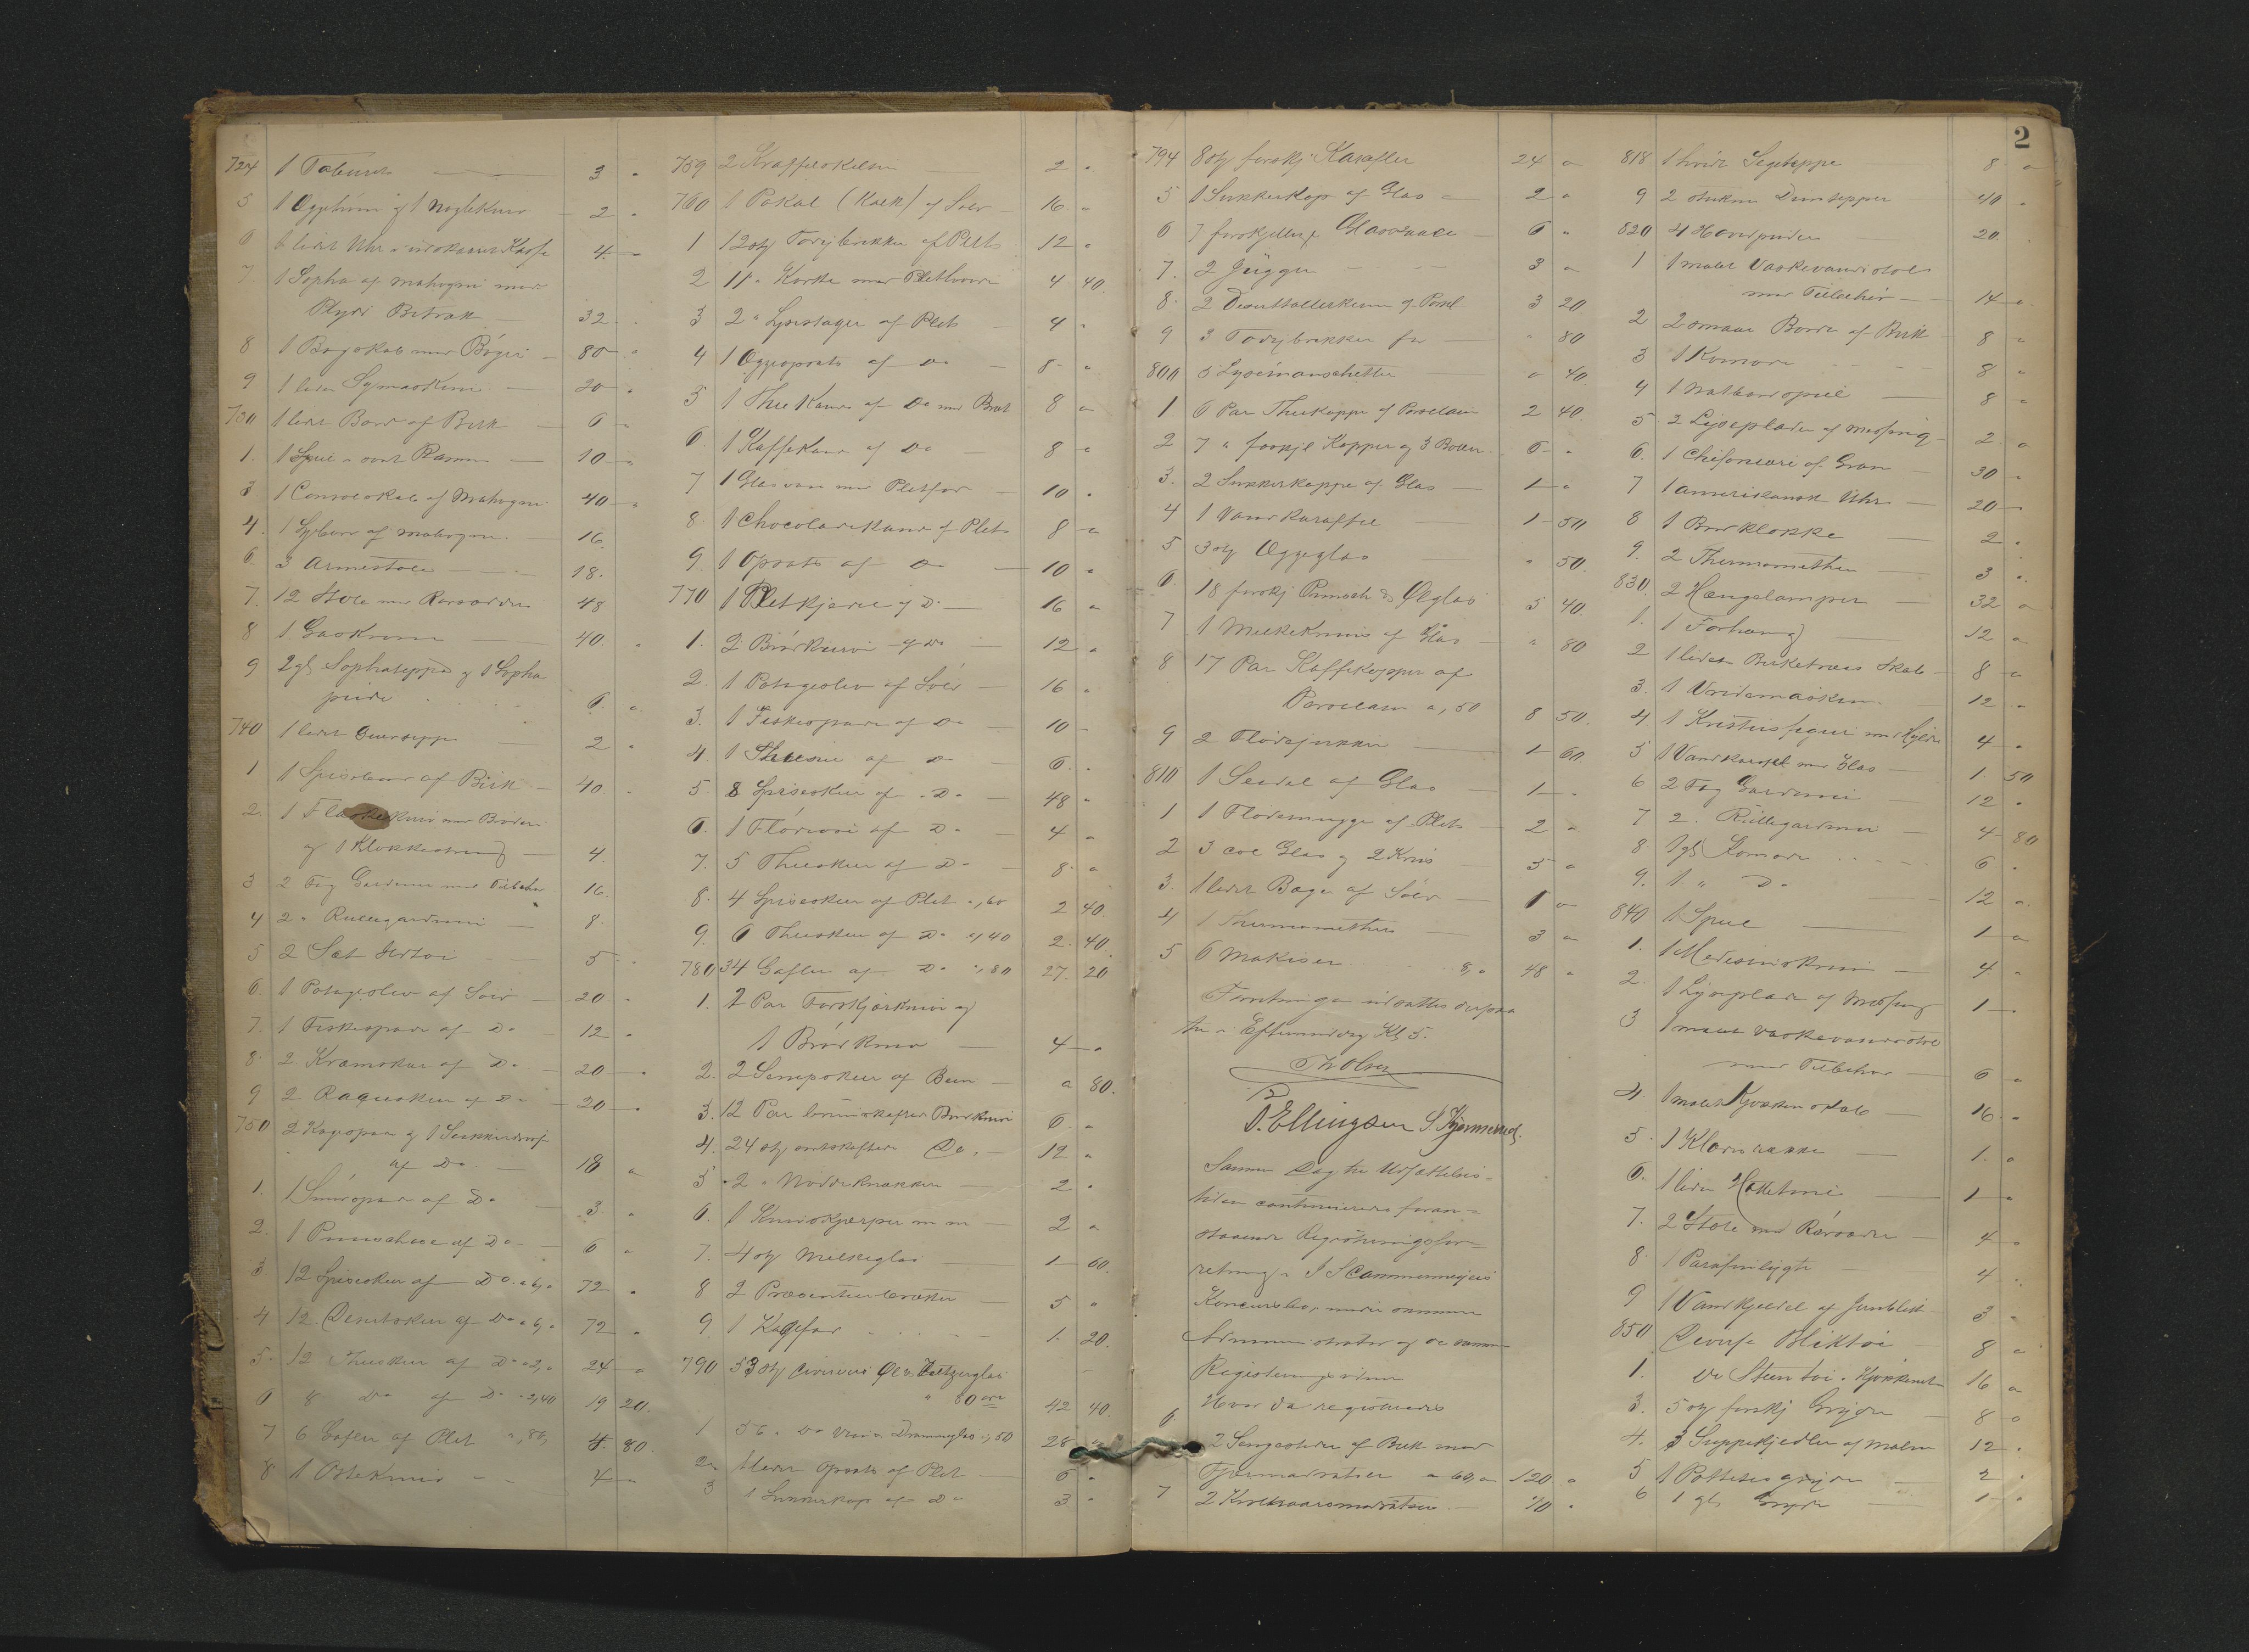 724 1 Taburet 3 "
5 1 Oggehvin og 1 Noglekurv 2 "
6 1 lidet Uhr i udskaaret Kasse 4 "
7 1 Sopha af mahogni med
Plyds Betræk 32 "
8 1 Bogskab med Bøger 80 "
9 1 liden Symaskine 20 "
730 1 lidet Bord af Birk 6 "
1. 1 Speil i sort Ramme 10 "
3. 1 Consolskab af Mahogni 40 "
4. 1 Sybord af mahogni 16
6 3 Armestole 18.
7. 12 Stole med Rørsæder 48
8 1 Gaskrone 40. "
9 2 gl Sophatepper og 1 Sopha
pude 6 "
740 1 lidet Gulvteppe 2 "
1 1 Spisebord af Birk 40 "
2. 1 Flaskekurv med Broderi
og 1 Klokkestreng 4.
3 2 Fag Gardiner med Tilbehør 16.
4 2 " Rullegardiner 8.
5 2 Sæt Ildtøi 5 "
6. 1 Potageslev af Sølv 20 "
7. 1 Fiskespade af Do 12 "
8. 2 Kramskar af Do 20 "
9 2 Raguskeer af Do 20 "
750 2 Kagespader og 1 Sukker
af Do. 18 "
1. 1 Smørspade af Do 3 "
2. 1 Punschese af Do 6 "
3 12 Spiseskeer af Do. a 6," 72 "
4 12 Desertskeer af Do a 6," 72 "
5. 12 Theskeer af Do a 2," 24 "
6 8 Do af Do a 2,40 19 20.
7 6 Gafler af Plet a ",80, 4. 80.
8 1 Ostekniv 4 "
759 2 Straffeskeer 2 "
760 1 Pokal (Kalk) af Sølv 16. "
1 12 stk Todybrikker af Plet 12 "
2 11 " Korke med Plethoveder 4 40.
3 2 " Lysestager af Plet 4 "
4 1 Eggeopsats af Do 8 "
5 1 Thee Kande af Do med Bret 8 "
6. 1 Kaffekande af Do 8 "
7 1 Glasvase med Pletfod 10 "
8 1 Chocoladekande af Plet 8 "
9. 1 Opsats af Do 10 "
770 1 Pletkjedel af Do 16 "
1. 2 Brødkurve af Do 12 "
2. 1 Potageslev af Sølv 16 "
3. 1 Fiskespade af Do 10 "
4. 1 Thesie af Do 6. "
5. 8 Spiseskeer af Do 48 "
6. 1 Flødeøse af Do 4 "
7. 5 Theskeer af Do 8. "
8. 4 Spiseskeer af Plet a ",60 2 40.
9. 6 Theskeer af Do a ",40 2. 40.
780 34 Gafler af Do a ",80 27. 20
1. 2 Par Forskjærkniver og
1 Brødkniv 4 "
2. 2 Senepskeer af Been " 80.
3. 12 Par brunskaftede Bordkniver 6. "
4. 24 stk sortskaftede Do. 12 "
5 2 " Nøddeknækkere 2 "
6. 1 Knivskjærper m m 2 "
7. 4 stk Melkeglas 1 60.
8 2 Præsenteerbrætter 5 "
9. 1 Kagefad 1. 20.
790 53 stk diverse Øl & Seltzerglas
a 80 øre 42 40.
1 56 " Do Vin & Dramneglas a ",50 28 "
2 1 lidet Opsats af Plet 6 "
3 1 Sukkerkop af Do 3 "
794 8 stk forskj. Karafler 24 "
5 1 Sukkerkop af Glas 2 "
6 7 forskjellige Glasvaaser 6 "
7. 2 Jugger 3 "
8. 2 Deserttallerkener af Porcel 3 20
9 3 Todybrikker for " 80
800 5 Lysemanschetter " 40.
1 6 Par Thekopper af Porcelain 2 40.
2 7 " forskjl Kopper og 3 Boller 6 "
3. 2 Sukkerkopper af Glas 1 "
4 1 Vandkaraffel 1 50
5 3 stk Eggeglas " 50.
6 18 forskj Punsch & Ølglas 5 40
7 1 Melkekrus af Glas " 80
8 17 Par Kaffekopper af
Porcelain a ",50 8 50.
9 2 Flødejukker 1 60
810 1 Seidel af Glas 1 "
1 1 Flødemugge af Plet 2 "
2 3 col Glas og 2 Krus 5 "
3. 1 lidet Bæger af Sølv 1 "
4 1 Thermomether 3 "
5 6 Markiser 8," 48 "
Forretningen udsattes derpaa
til i Eftermiddag Kl 5.
Th Olsen
P. Ellingsen S. Hjemmered.
Samme Dag til Udsættelses-
tiden continueredes foran-
staaende Registreringsfor-
retning i J S Cammermeyers
Konkursbo, under samme
Administrator og de samme
Registreringsvidner
Hvor da registreredes
6 2 Sengesteder af Birk med
Fjærmadratser a 60," 120 "
7 2 Krølhaarsmadratser 70 "
818 1 hvidt Sengeteppe 8 "
9 2 stukne Duntepper 40 "
820 4 Hovedpuder 20.
1 1 malet Vaskevandsstol
med Tilbehør 14 "
2 2 smaae Borde af Birk 8 "
3 1 Komode 8 "
4 1 Natbordspeil 8 "
5. 2 Lyseplader af Messing 2. "
6. 1 Chifoniere af Gran 30 "
7 1 amerikansk Uhr 20 "
8 1 Bordklokke 2 "
9. 2 Thermomether 3 "
830. 2 Hængelamper 32 "
1. 1 Forhæng 12 "
2 1 lidet Birketræes Skab 8 "
3. 1 Vridemaskine 12 "
4 1 Kristusfigur med Hylde 4 "
5 1 Vandkaraffel med Glas 1. 50
6 2 Fag Gardiner 12 "
7 2. Rullegardiner 4 80
8. 1 gl Komode 6 "
9. 1 " Do 12 "
840 1 Speil 1 "
1. 1 Medesinskrin 4 "
2. 1 Lyseplade af Messing 1 "
3 1 malet Vaskevandsstol
med Tilbehør 6 "
4. 1 malet Kjøkkenskab 16 "
5. 1 Klædesrække 1. "
6. 1 liden Hattetine 1 "
7. 2 Stole med Rørsæder 4 "
8. 1 Parafinlygte 4 "
9 1 Vandkjedel af Jernblik 3 "
850 Diverse Bliktøi 8 "
1. Do Steentøi i Kjøkkenet 16 "
3. 5 stk forskj Gryder 8 "
4. 3 Suppekjedler af Malm 12 "
5 1 Pottetesgryde 2 "
6 1 gl Gryde 1 "
2